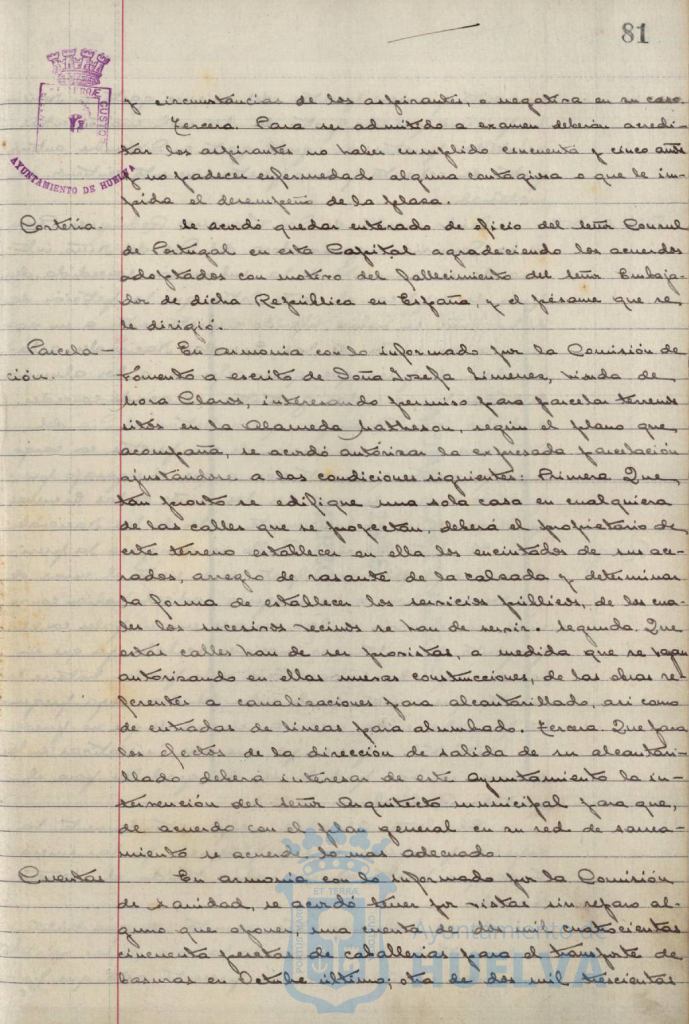 81
y circunstancias de los aspirantes, o negativa en su caso.
Tercera. Para ser admitido a examen deberán acredi-
tar los aspirantes no haber cumplido cincuenta y cinco años
y no padecer enfermedad alguna contagiosa o que le im-
pida el desempeño de la plasa.
AYUNTAMIENTO DE HUELVA
Cortesía. Se acordó quedar enterado de oficio del señor Consul
de Portugal en esta Capital agradeciendo los acuerdos
adoptados con motivo del fallecimiento del señor Embaja-
dor de dicha República en España, y el pésame que se
le dirigió.
Parcela- En armonia con lo informado por la Comisión de
ción. Fomento a escrito de Doña Josefa Jimenez, viuda de
Mora Claros, interesando permiso para parcelar terrenos
sitos en la Alameda Matheson, según el plano que
acompaña, se acordó autorizar la expresada parcelación
ajustándose a las condiciones siguientes: Primera Que
tan pronto se edifique una sola casa en cualquiera
de las calles que se proyectan, deberá el propietario de
este terreno establecer en ella los encintados de sus ace-
rados, arreglo de rasante de la calsada y determinar
la forma de establecer los servicios públicos, de los cua-
les los sucesivos vecinos se han de servir. Segunda. Que
estas calles han de ser provistas, a medida que se vayan
autorizando en ellas nuevas construcciones, de las obras re-
ferentes a canalizaciones para alcantarillado, asi como
de entradas de lineas para alumbrado. Tercera. Que para
los efectos de la dirección de salida de su alcantari-
llado deberá interesar de este Ayuntamiento la in-
tervención del señor Arquitecto municipal para que,
de acuerdo con el plan general en su red de sanea-
miento se acuerde lo mas adecuado.
Cuentas En armonia con lo informado por la Comisión
de Sanidad, se acordó tener por vistas sin reparo al-
guno que oponer, una cuenta de dos mil cuatrocientas
cincuenta pesetas de caballerias para el transporte de
basuras en Octubre último; otra de dos mil trescientas
Ayuntamiento de
HUELVA